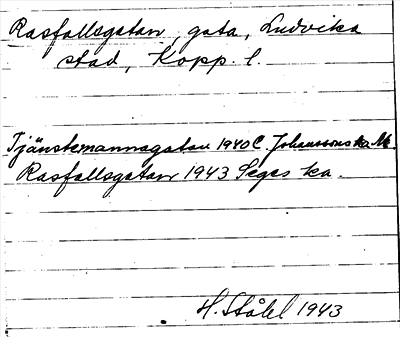 Rasfallsgatan, gata, Ludvika
stad, Kopp. l.
Tjänstemannagatan 1940 C. Johanssons ka M.
Rasfallsgatan 1943 Seges ka.
H. Ståhl 1943